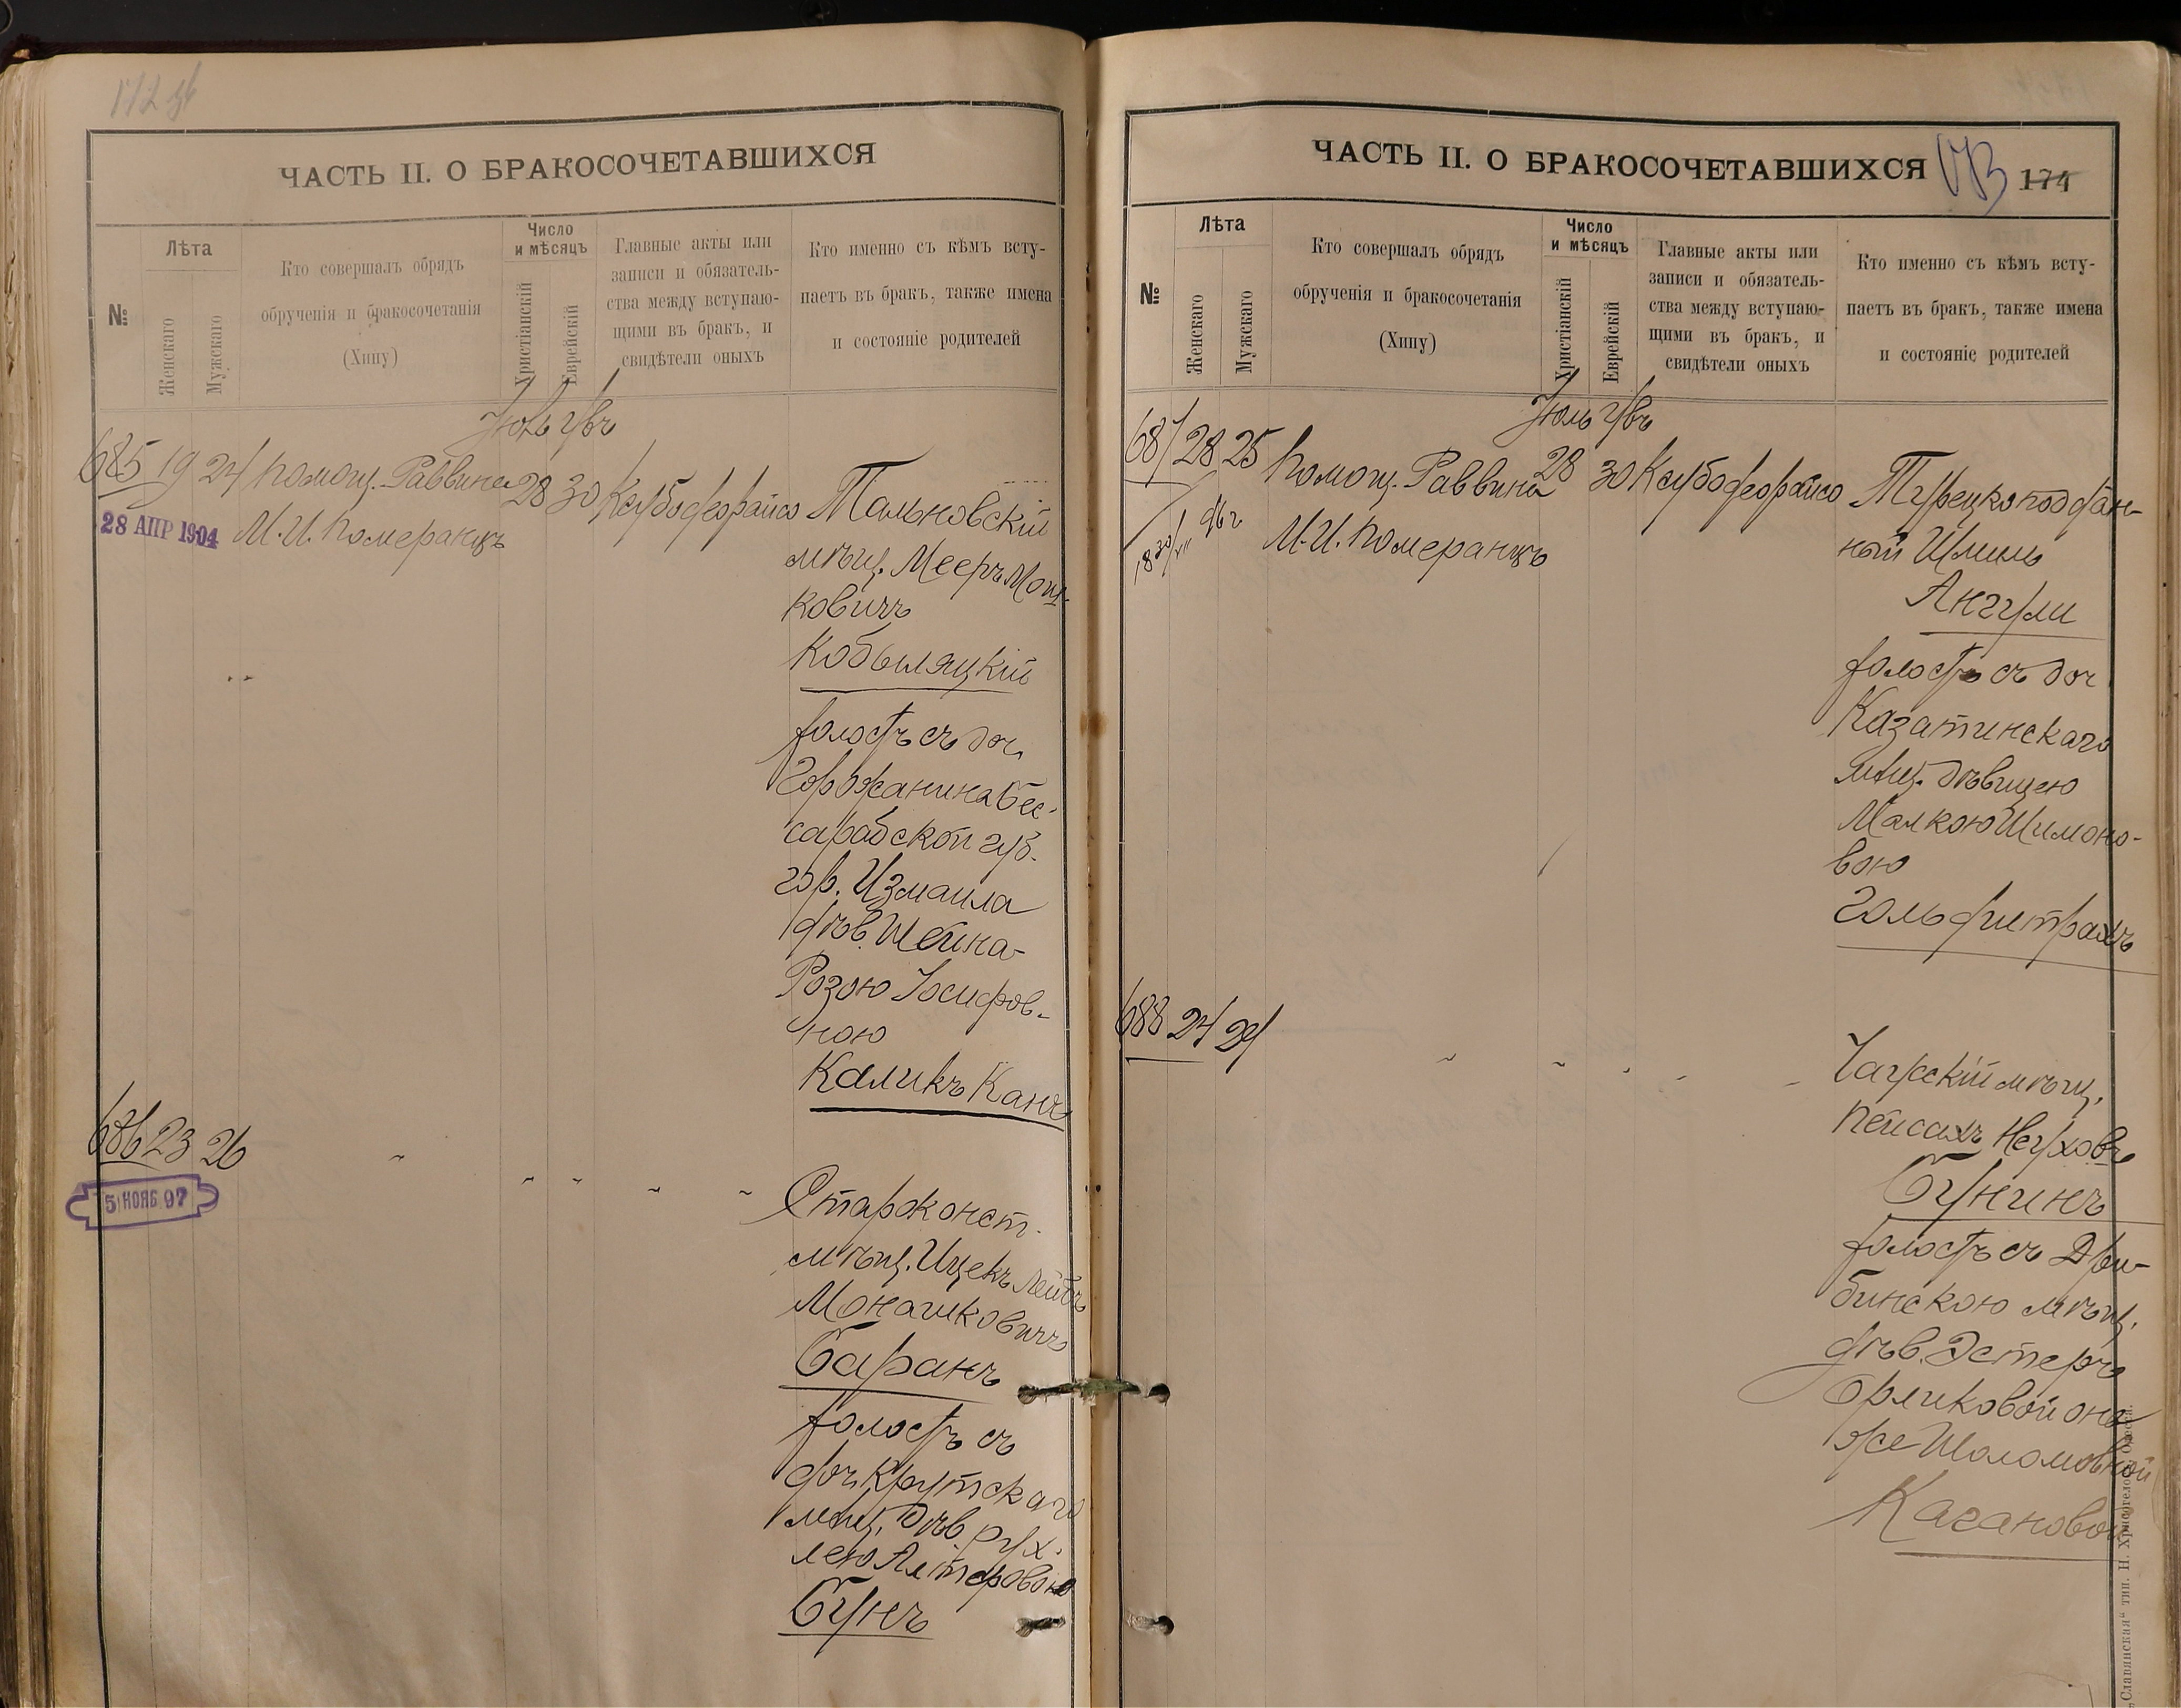 ЧАСТЬ II. О БРАКОСОЧЕТАВШИХСЯ
№
Лѣта
Женскаго
Мужскаго
Кто совершалъ обрядъ
обрученія и бракосочетанія
(Хипу)
Число
и мѣсяцъ
Христіанскій
Еврейскій
Главные акты или
записи и обязатель-
ства между вступаю-
щими въ бракъ, и
свидѣтели оныхъ
Кто именно съ кѣмъ всту-
паетъ въ бракъ, также имена
и состояніе родителей
Іюль
685 19 24 Помощ. Раввина 28 30
28 АПР 1904
М. И. Померанцъ
Тальновскій
мѣщ. Мееръ Мош-
ковичъ
Кобыляцкій
холостъ съ доч.
горожанина Бес-
сарабской губ.
гор. Измаила
дѣв. Шейна-
Розою Іосифов-
ною
Каликъ Канъ
686 23 26
5 НОЯБ 97
Староконст.
мѣщ. Ицекъ Лейбъ
Монашковичъ
Баранъ
холостъ съ
доч. Крутскаго
мѣщ. дѣв. Рух-
лею Алтеровою
Бунъ
ЧАСТЬ II. О БРАКОСОЧЕТАВШИХСЯ
173 174
№
Лѣта
Женскаго
Мужскаго
Кто совершалъ обрядъ
обрученія и бракосочетанія
(Хипу)
Число
и мѣсяцъ
Христіанскій
Еврейскій
Главные акты или
записи и обязатель-
ства между вступаю-
щими въ бракъ, и
свидѣтели оныхъ
Кто именно съ кѣмъ всту-
паетъ въ бракъ, также имена
и состояніе родителей
Іюль
687 28 25 Помощ. Раввина 28 30
М. И. Померанцъ
Турецкоподдан-
ный Шлима
Ангули
холостъ съ доч
Казатинскаго
мѣщ. дѣвицею
Малкою Шимоно-
вою
Гольфитрахъ
688 24 24
Чаусскій мѣщ.
Пейсахъ Неуховъ
Бунинъ
холостъ съ Дри-
бинскою мѣщ.
дѣв. Эстеръ
Орликовой она
же Шоломовной
Кагановой
„Славянская“ тип. Н. Хрисогелосъ, Одесса.